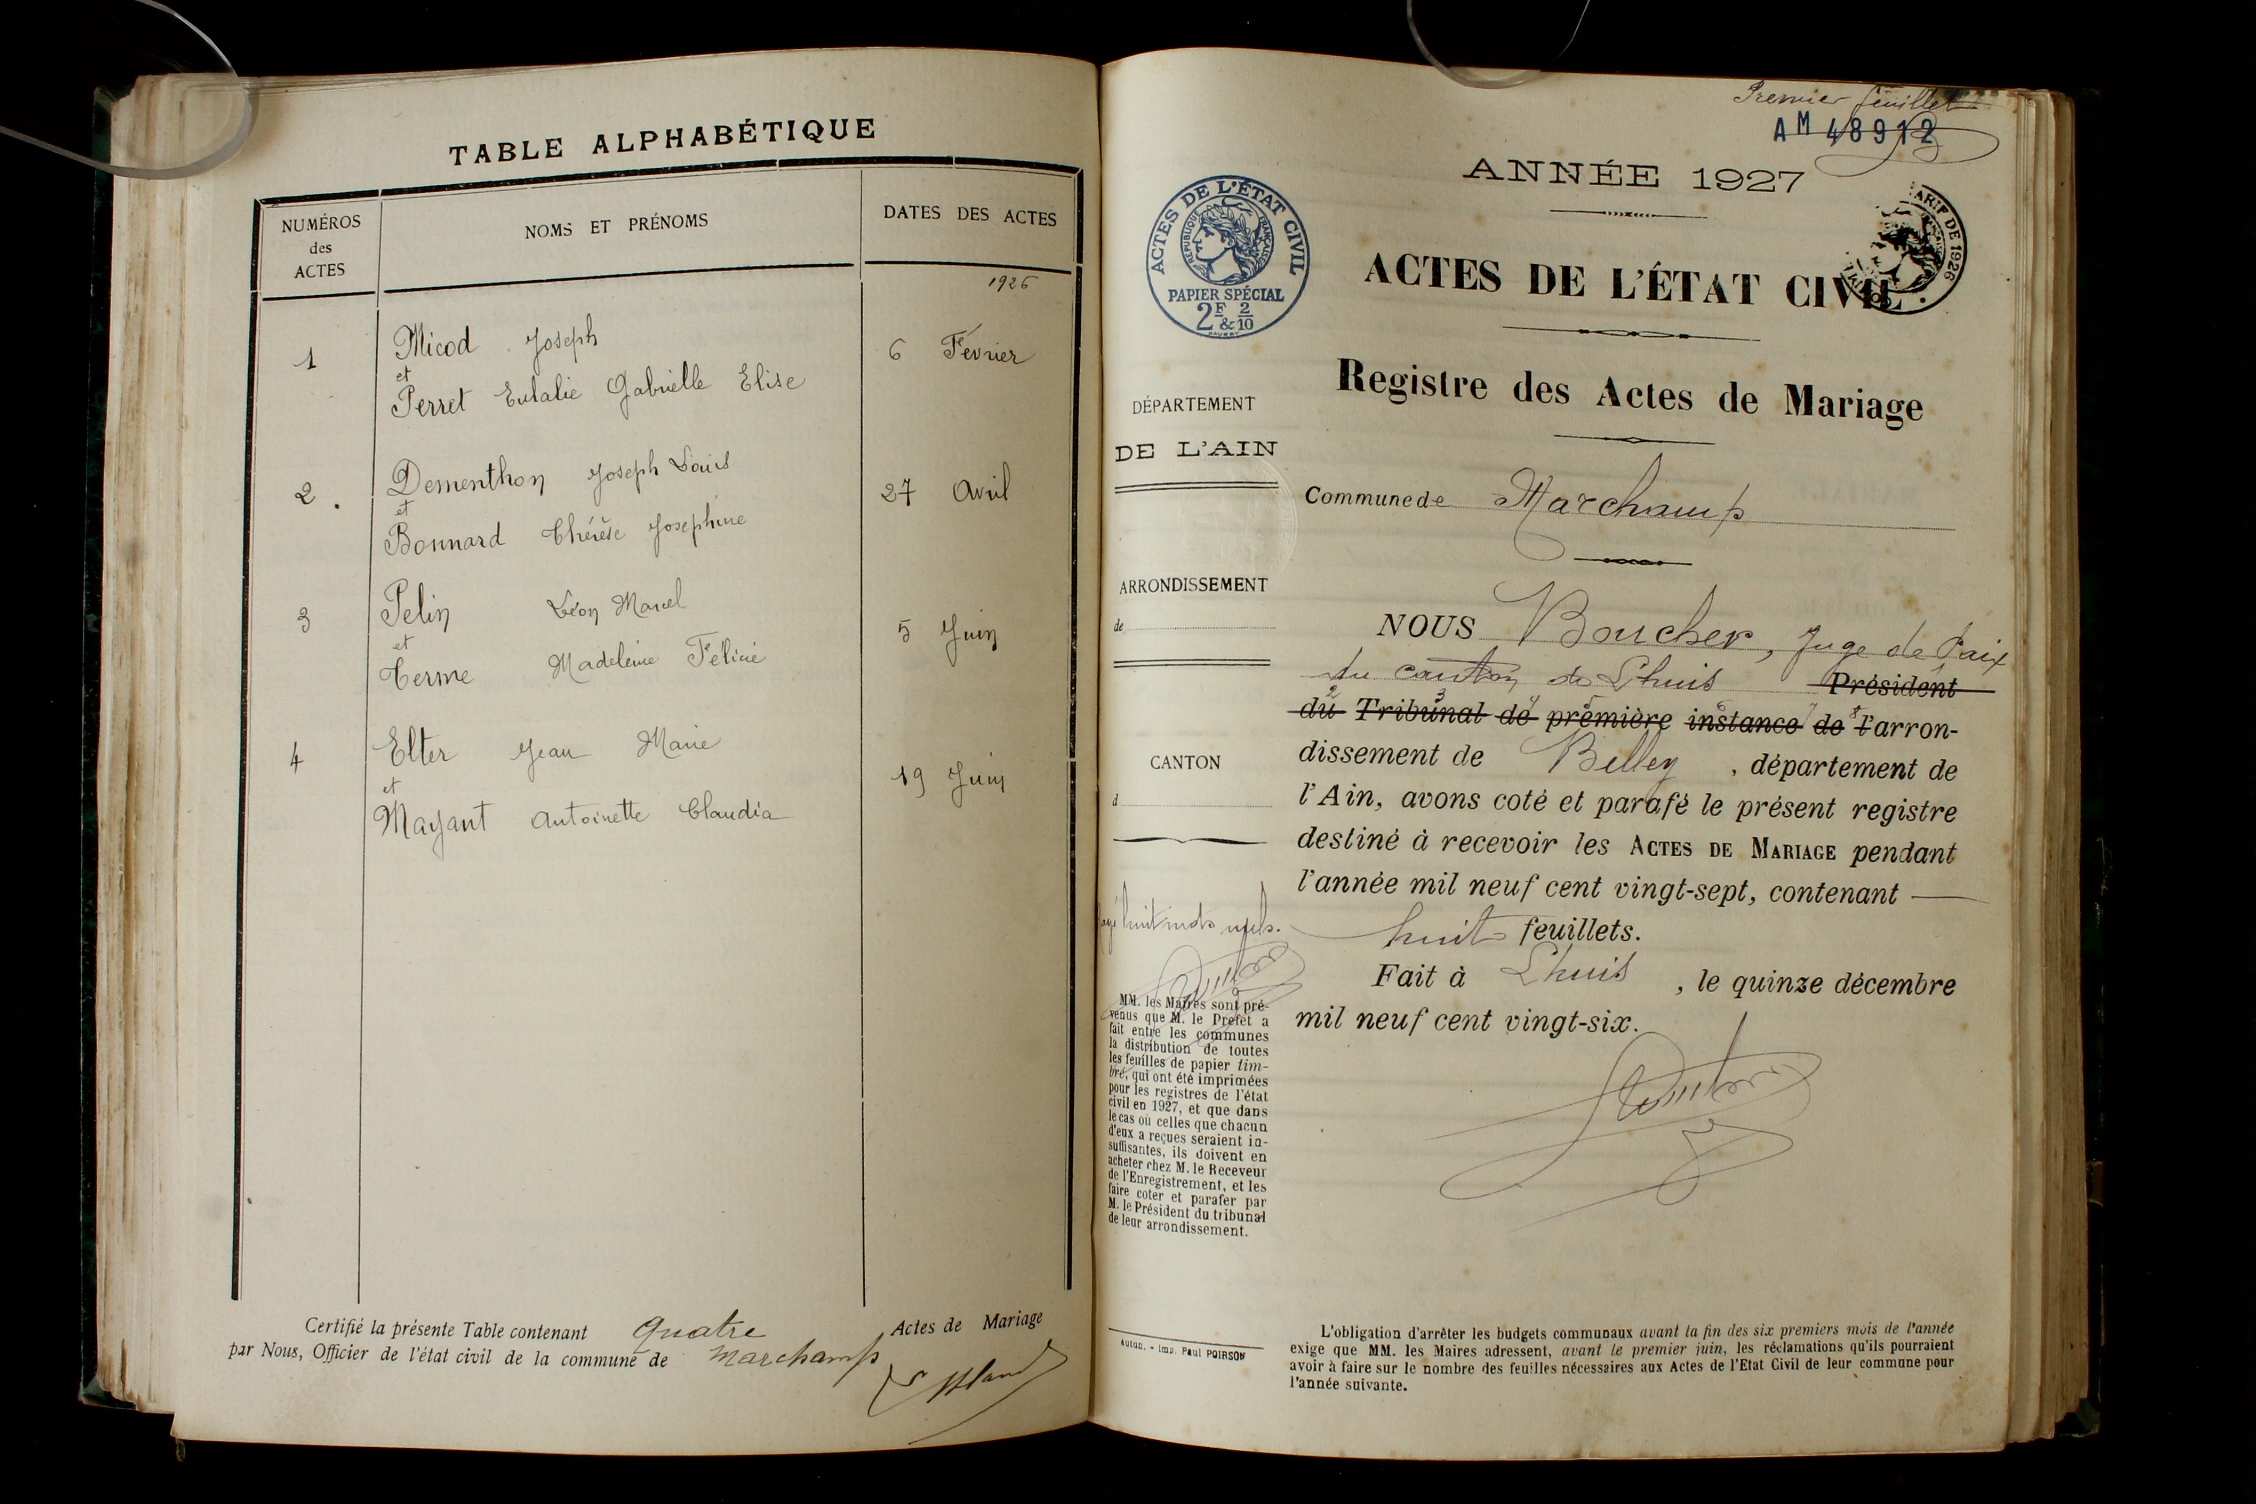 TABLE ALPHABÉTIQUE
NUMÉROS
des
ACTES
NOMS ET PRÉNOMS
DATES DES ACTES
1926
1
Micod Joseph
et
Perret Eulalie Gabrielle Elise
6 Février
2.
Dementhon Joseph Louis
et
Bonnard Thérèse Joséphine
27 Avril
3
Pelin Léon Marcel
et
Terme Madeleine Félicie
5 Juin
4
Elter Jean Marie
et
Mayant Antoinette Claudia
19 Juin
Certifié la présente Table contenant Quatre Actes de Mariage
par Nous, Officier de l'état civil de la commune de Marchamp
Premier feuillet
AM 48912
ANNÉE 1927
ACTES DE L'ÉTAT CIVIL
RÉPUBLIQUE FRANÇAISE
PAPIER SPÉCIAL
2F & 2/10
TARIF DE 1926
ACTES DE L'ÉTAT CIVIL.
Registre des Actes de Mariage
DÉPARTEMENT
DE L'AIN
Commune de Marchamp
ARRONDISSEMENT
de
CANTON
d
NOUS Boucher, Juge de Paix
du canton de Lhuis Président
du Tribunal de première instance de l'arron-
dissement de Belley, département de
l'Ain, avons coté et parafé le présent registre
destiné à recevoir les ACTES DE MARIAGE pendant
l'année mil neuf cent vingt-sept, contenant
huit feuillets.
Fait à Lhuis, le quinze décembre
mil neuf cent vingt-six.
huit mots nuls.
MM. les Maires sont pré-
venus que M. le Préfet a
fait entre les communes
la distribution de toutes
les feuilles de papier tim-
bré, qui ont été imprimées
pour les registres de l'état
civil en 1927, et que dans
le cas où celles que chacun
d'eux a reçues seraient in-
suffisantes, ils doivent en
acheter chez M. le Receveur
de l'Enregistrement, et les
faire coter et parafer par
M. le Président du tribunal
de leur arrondissement.
Autun. - Imp. Paul POIRSON
L'obligation d'arrêter les budgets communaux avant la fin des six premiers mois de l'année
exige que MM. les Maires adressent, avant le premier juin, les réclamations qu'ils pourraient
avoir à faire sur le nombre des feuilles nécessaires aux Actes de l'Etat Civil de leur commune pour
l'année suivante.